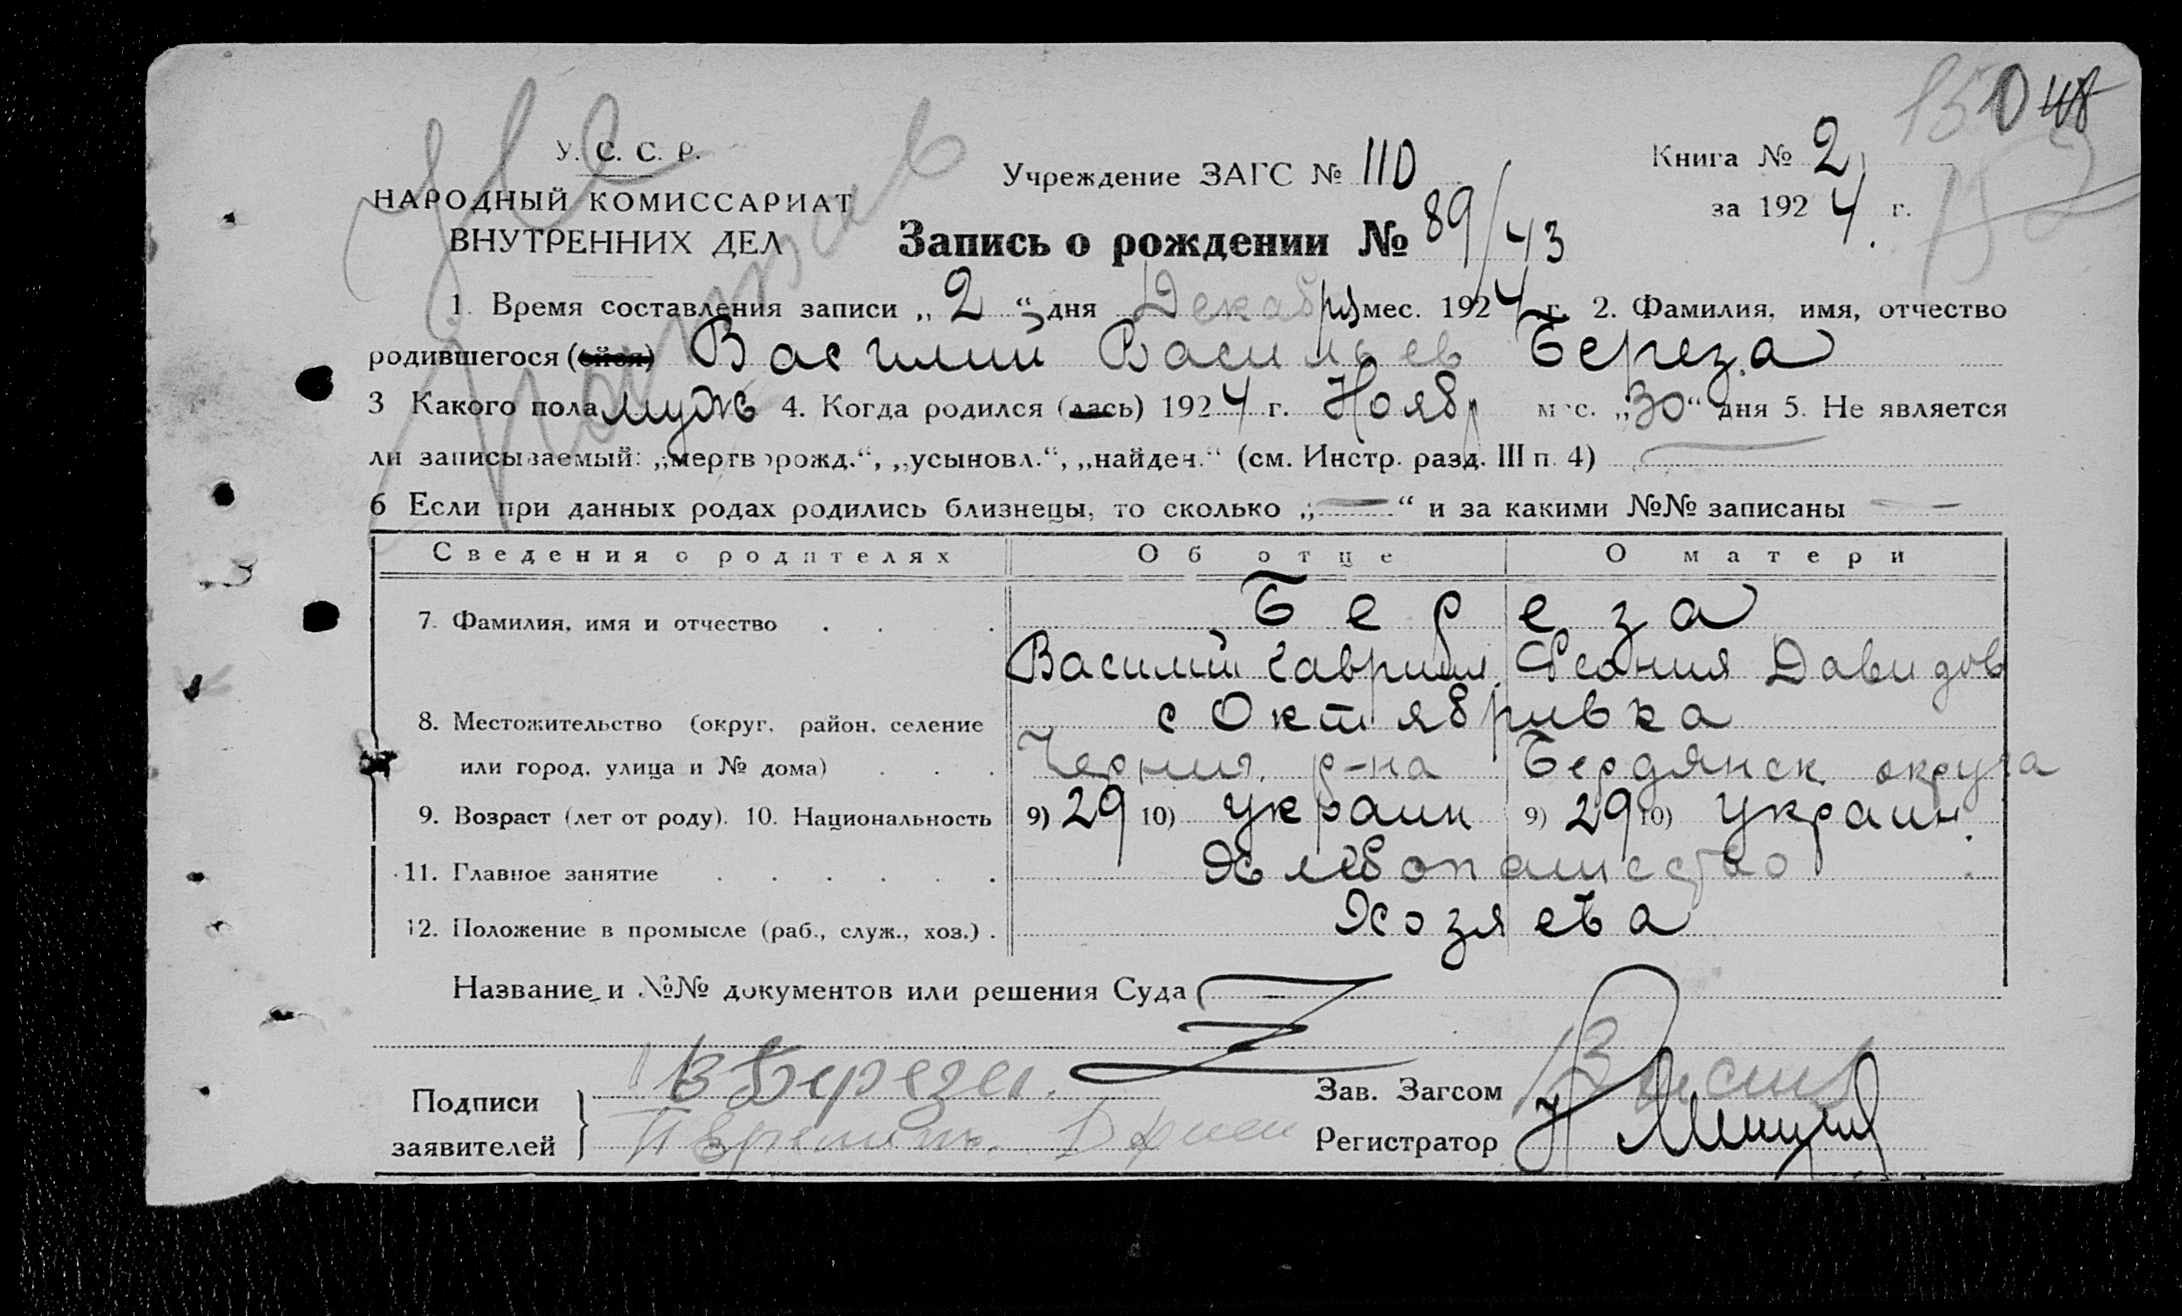 У. С. С. Р.
НАРОДНЫЙ КОМИССАРИАТ
ВНУТРЕННИХ ДЕЛ
Учреждение ЗАГС № 110
Книга № 2
за 1924 г.
Запись о рождении № 89/43
1. Время составления записи „2“ дня Декабря мес. 1924 г. 2. Фамилия, имя, отчество
родившегося (ейся) Василий Васильев Береза
3 Какого пола муж 4. Когда родился (лась) 1924 г. Ноябр мес. „30“ дня 5. Не является
ли записываемый: „мертворожд.“, „усыновл.“, „найден.“ (см. Инстр. разд. III п. 4) —
6 Если при данных родах родились близнецы, то сколько „—“ и за какими №№ записаны —
Сведения о родителях Об отце О матери
7. Фамилия, имя и отчество . . . Береза
Василий Гаврил. Феония Давидов
8. Местожительство (округ, район, селение с Октябривка
или город, улица и № дома) . . . Черниг. р-на Бердянск округа
9. Возраст (лет от роду). 10. Национальность 9) 29 10) украин 9) 29 10) украин.
11. Главное занятие . . . . . . Хлебопашество
12. Положение в промысле (раб., служ., хоз.) . Хозяева
Название и №№ документов или решения Суда
Подписи
заявителей
В Береза.
Зав. Загсом
Регистратор